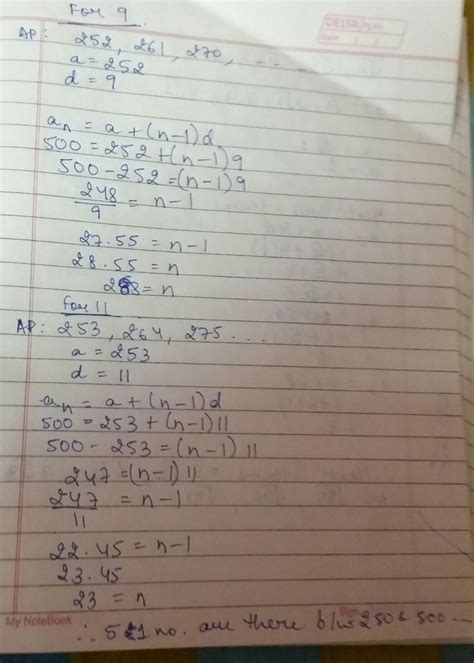 For 9
DELTA/
Date
AP: 252, 261, 270, ....
a = 252
d = 9
an = a + (n-1)d
500 = 252 + (n-1)9
500 - 252 = (n-1)9
248/9 = n-1
27.55 = n-1
28.55 = n
28 = n
For 11
AP: 253, 264, 275 ...
a = 253
d = 11
an = a + (n-1)d
500 = 253 + (n-1)11
500 - 253 = (n-1)11
247 = (n-1)11
247/11 = n-1
22.45 = n-1
23.45
23 = n
My NoteBook
Sign
∴ 51 no. are there b/w 250 & 500 —